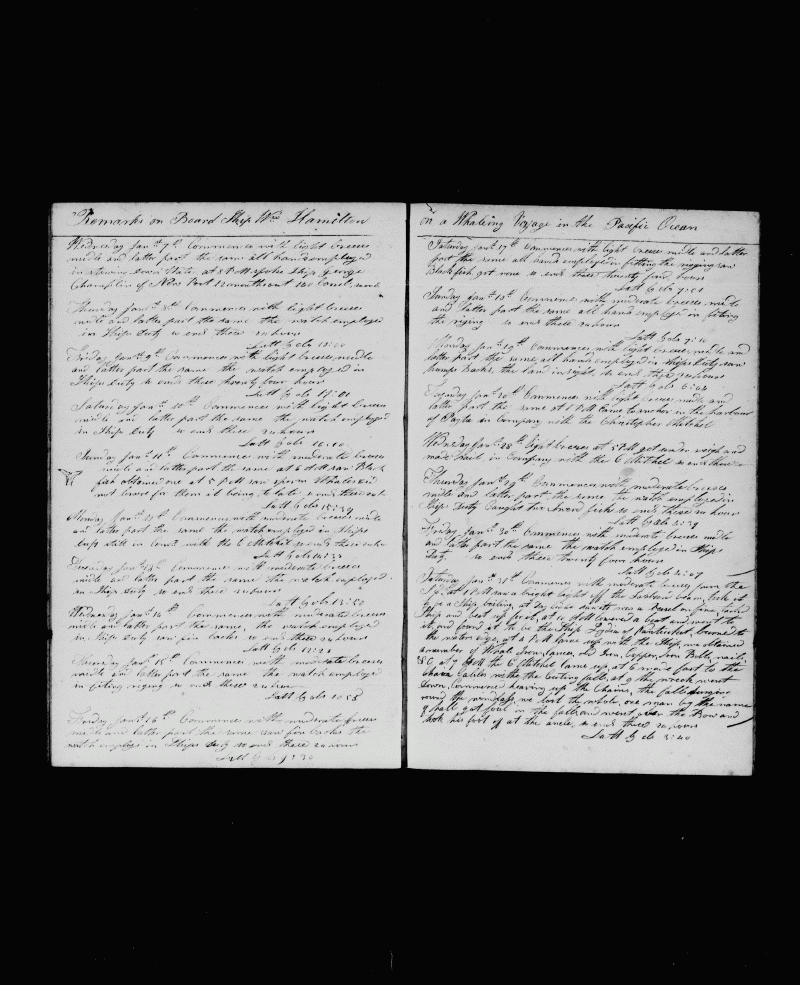 Remarks on Board Ship Wm Hamilton
Wednesday Jan 7th Commences with light breezes
midle and latter part the same all hands employed
in stowing down at 8 PM spoke Ship George
Champlin of New Port months out
Thursday Jan 8th Commences with light breezes
midle and latter part the same the watch employed
in Ships Duty so ends these 24 hours
Latt by obs
Friday Jan 9th Commences with light breezes, midle
and latter part the same the watch employed in
Ships Duty so ends these twenty four hours
Latt by obs
Saturday Jan 10th Commences with light breezes
midle and latter part the same the watch employed
in Ships Duty so ends these 24 hours
Latt by obs
Sunday Jan 11th Commences with moderate breezes
midle and latter part the same at 6 AM saw Black
fish obtained one at 5 PM saw sperm Whales did
not lower for them it being to late so ends these
Latt by obs
Monday Jan Commences with moderate breezes midle
and latter part the same the watch employed in Ships
Duty still in with the C Mitchel so ends these
Latt by obs
Commences with moderate breezes
midle and latter part the same the watch employed
in Ships Duty so ends these 24 hours
Latt by obs
Wednesday Jan 14th Commences with moderate breezes
midle and latter part the same, the watch employed
in Ships Duty saw fin backs so ends these 24 hours
Latt by obs
Thursday Jan 15th Commences with moderate breezes
midle and latter part the same the watch employed
in fiting riging so ends these 24 hours
Latt by obs
Friday Jan 16th Commences with moderate breezes
midle and latter part the same saw fin backs the
watch employed in Ships Duty so ends these 24 hours
Latt by obs
on a Whaleing Voyage in the Pacific Ocean
Saturday Jan 17th Commences with light breezes midle and latter
part the same all hands employed in fitting the rigging saw
Blackfish got none so ends these twenty four hours
Latt by obs
Sunday Jan 18th Commences with moderate breezes midle
and latter part the same all hands employed in fiting
the riging so ends these 24 hours
Latt by obs
Monday Jan 19th Commences with light breezes, midle and
latter part the same all hands employed in Ships Duty saw
humps backs, the land in sight, so ends these 24 hours
Latt by obs
Tuesday Jan 20th Commences with light breezes midle and
latter part the same at 1 PM Came to anchor in the harbour
of Payta in Company with the Christopher Mitchel
Wednesday Jan 28th light breezes at 5 PM got under weigh and
made Sail in Company with the C Mitchel so ends these
Thursday Jan 29th Commences with moderate breezes
midle and latter part the same the watch employed in
Ships Duty Caught fish so ends these 24 hours
Latt by obs
Friday Jan 30th Commences with moderate breezes midle
and latter part the same the watch employed in Ships
Duty, so ends these twenty four hours
Latt by obs
Saturday Jan 31st Commences with moderate breezes from the
at 1 PM saw a bright light off the Larboard beam, took it
to be a Ship boiling, at day light saw it was a Vessel on fire, tacked
Ship and beat up for it, at 10 AM lowered a boat and went to
it, and found it to be the Ship of Nantucket, burned to
the waters edge, at 2 PM came up with the Ship, we obtained
a number of Whale Irons, Lances, old Iron, Copper, Iron Bolts, nails,
&C, at 7 PM the C Mitchel came up, at 8 made fast to the
chain Cables with the Cutting falls, at 9 the wreck went
down, Commenced heaving up the Chains, the falls
round the windlass, we lost the whole, one man by the name
of got foul in the falls and went over the Bow and
took his foot off at the ancle, so ends these 24 hours
Latt by obs 3:40